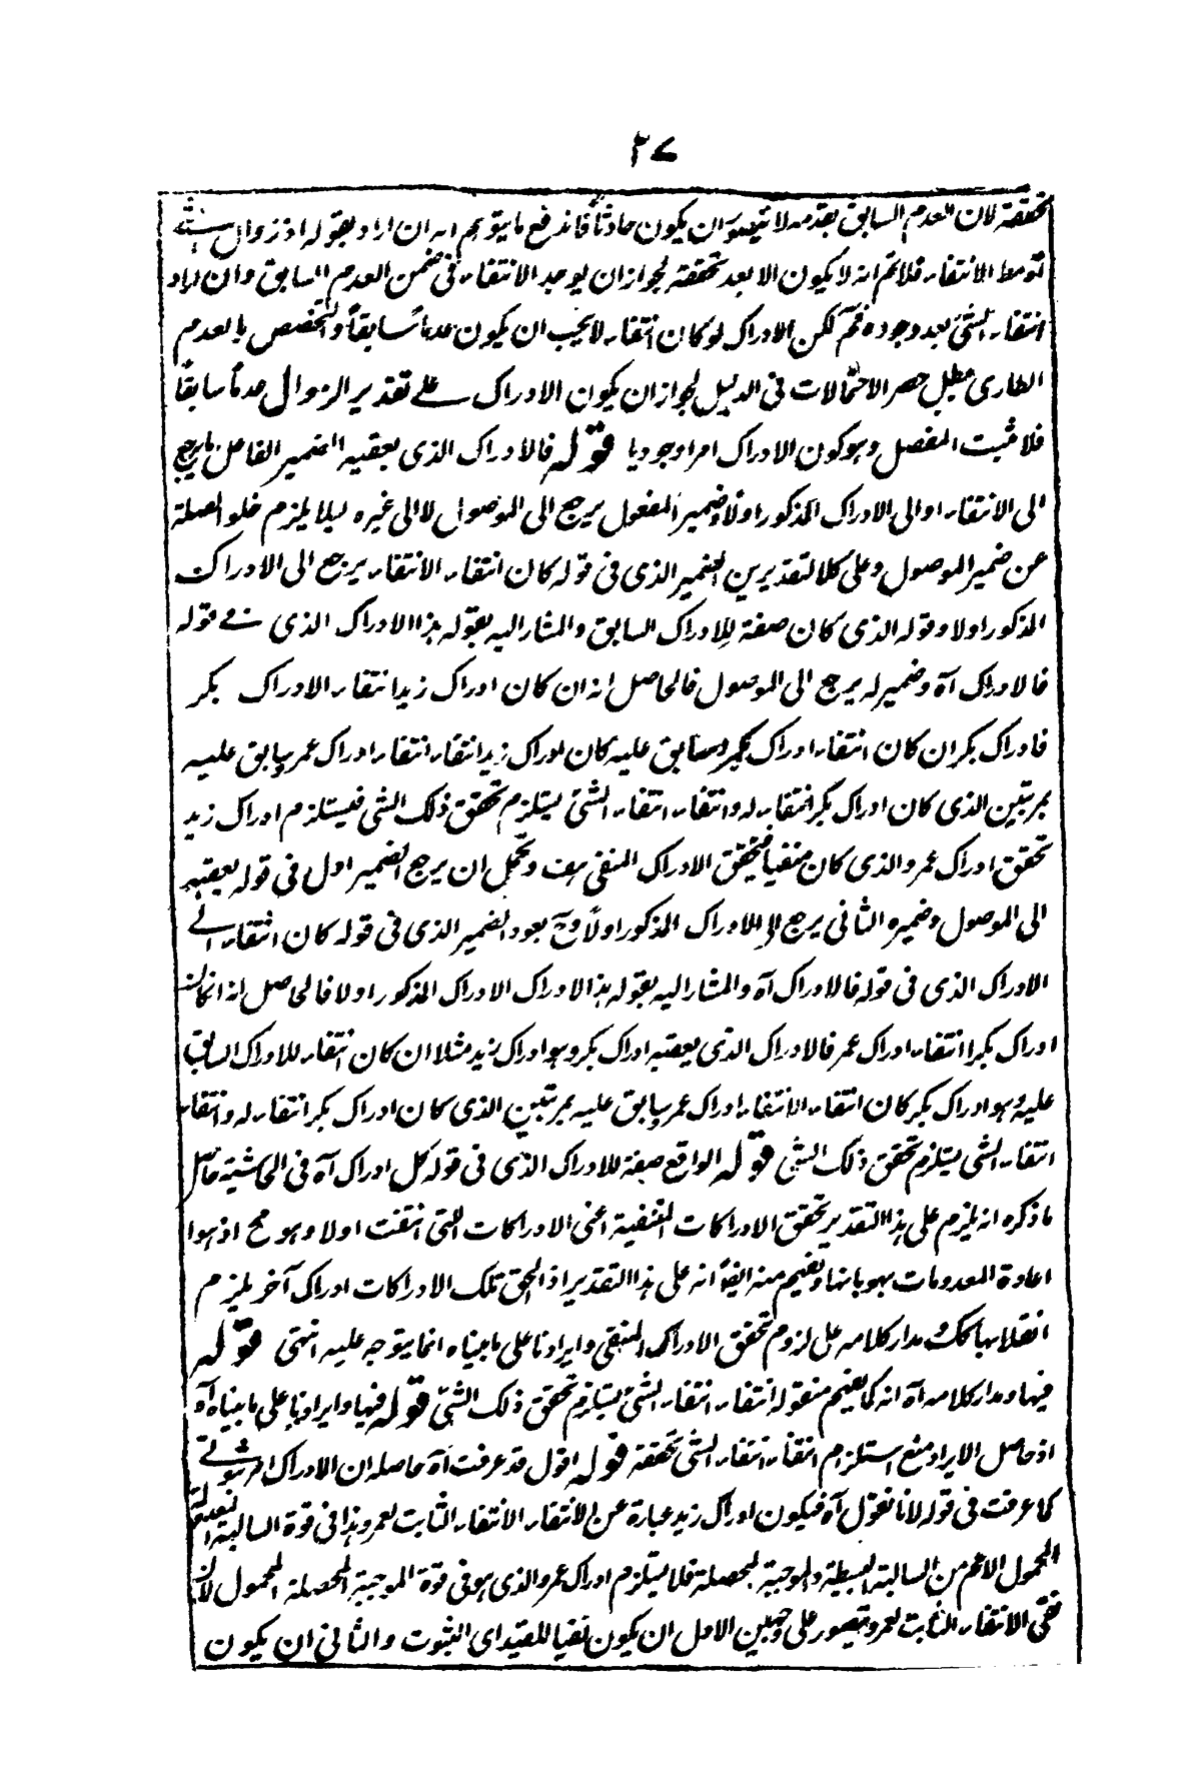 ٢٧
تحققه لان العدم السابق بقدمه لا يتصور ان يكون حادثا فاندفع ما يتوهم انه ان اراد بقوله اذ زوال الشئ
توسط الانتفاء فلا نم انه لا يكون الا بعد تحققه لجواز ان يوجد الانتفاء فى ضمن العدم السابق وان اراد
انتفاء الشئ بعد وجوده فمم لكن الادراك لو كان انتفاء لا يجب ان يكون عدماً سابقاً والتخصص بالعدم
الطارى مبطل حصر الاحتمالات فى الدليل لجواز ان يكون الادراك على تقدير الزوال عدماً سابقاً
فلا مثبت المفصل وهو كون الادراك امرا وجوديا قوله فالادراك الذى يعقبه الضمير الفاعل يرجع
الى الانتفاء او الى الادراك المذكور اولا وضمير المفعول يرجع الى الموصول لا الى غيره ليلا يلزم خلو الصلة
عن ضمير الموصول وعلى كلا التقديرين الضمير الذى فى قوله كان انتفاء الانتفاء يرجع الى الادراك
المذكور اولا وقوله الذى كان صفة للادراك السابق والمشار اليه بقوله هذا الادراك الذى فى قوله
فالادراك آه وضمير له يرجع الى الموصول فالحاصل انه ان كان ادراك زيد انتفاء الادراك بكر
فادراك بكر ان كان انتفاء ادراك عمر وسابق عليه كان ادراك زيد انتفاء انتفاء ادراك عمر سابق عليه
بمرتبتين الذى كان ادراك بكر انتفاء له وانتفاء انتفاء الشئ يستلزم تحقق ذلك الشى فيستلزم ادراك زيد
تحقق ادراك عمرو الذى كان منفيا فيتحقق الادراك المنفى هف ويحتمل ان يرجع الضمير اول فى قوله يعقبه
الى الموصول وضميره الثانى يرجع الى الادراك المذكور اولاً وح يعود الضمير الذى فى قوله كان انتفاء الى
الادراك الذى فى قوله فالادراك آه والمشار اليه بقوله هذا الادراك الادراك المذكور اولا فالحاصل انه اذا كان
ادراك بكر انتفاء ادراك عمر فالادراك الذى يعقبه ادراك بكر وهو ادراك زيد مثلا ان كان انتفاء للادراك السابق
عليه وهو ادراك بكر كان انتفاء الانتفاء ادراك عمر سابق عليه بمرتبتين الذى كان ادراك بكر انتفاء له وانتفاء
انتفاء الشى يستلزم تحقق ذلك الشى قوله الواقع صفة للادراك الذى فى قوله كل ادراك آه فى الحاشية حاصل
ما ذكره انه يلزم على هذا التقدير تحقق الادراكات المنتفية اعنى الادراكات التى انتفت اولا وهو مح اذ هوا
اعادة المعدومات بهوياتها ويفهم منه ايضاً انه على هذا التقدير اذا لحق تلك الادراكات ادراك آخر يلزم
انقلابها كك ومدار كلامه على لزوم تحقق الادراك المنفى وايرادنا على ما بيناه انما يتوجه عليه انتهى قوله
فيها ومدار كلامه آه انه كما يفهم من قوله انتفاء انتفاء الشئ يستلزم تحقق ذلك الشئ قوله فيها وايرادنا على ما بيناه آه
اذ حاصل الايراد منع استلزام انتفاء انتفاء الشى تحققه قوله اقول قد عرفت آه حاصله ان الادراك امر ثبوتى
كما عرفت فى قوله لانا نقول آه فيكون ادراك زيد عبارة عن الانتفاء الانتفاء الثابت لعمر وهذا فى قوة السالبة
المحمول الاعم من السالبة البسيطة والموجبة المحصلة فلا يستلزم ادراك عمرو الذى هو فى قوة الموجبة المحصلة المحمول لان
نفى الانتفاء الثابت لعمرو يتصور على وجهين الاول ان يكون نفيا للقيد اى الثبوت والثانى ان يكون